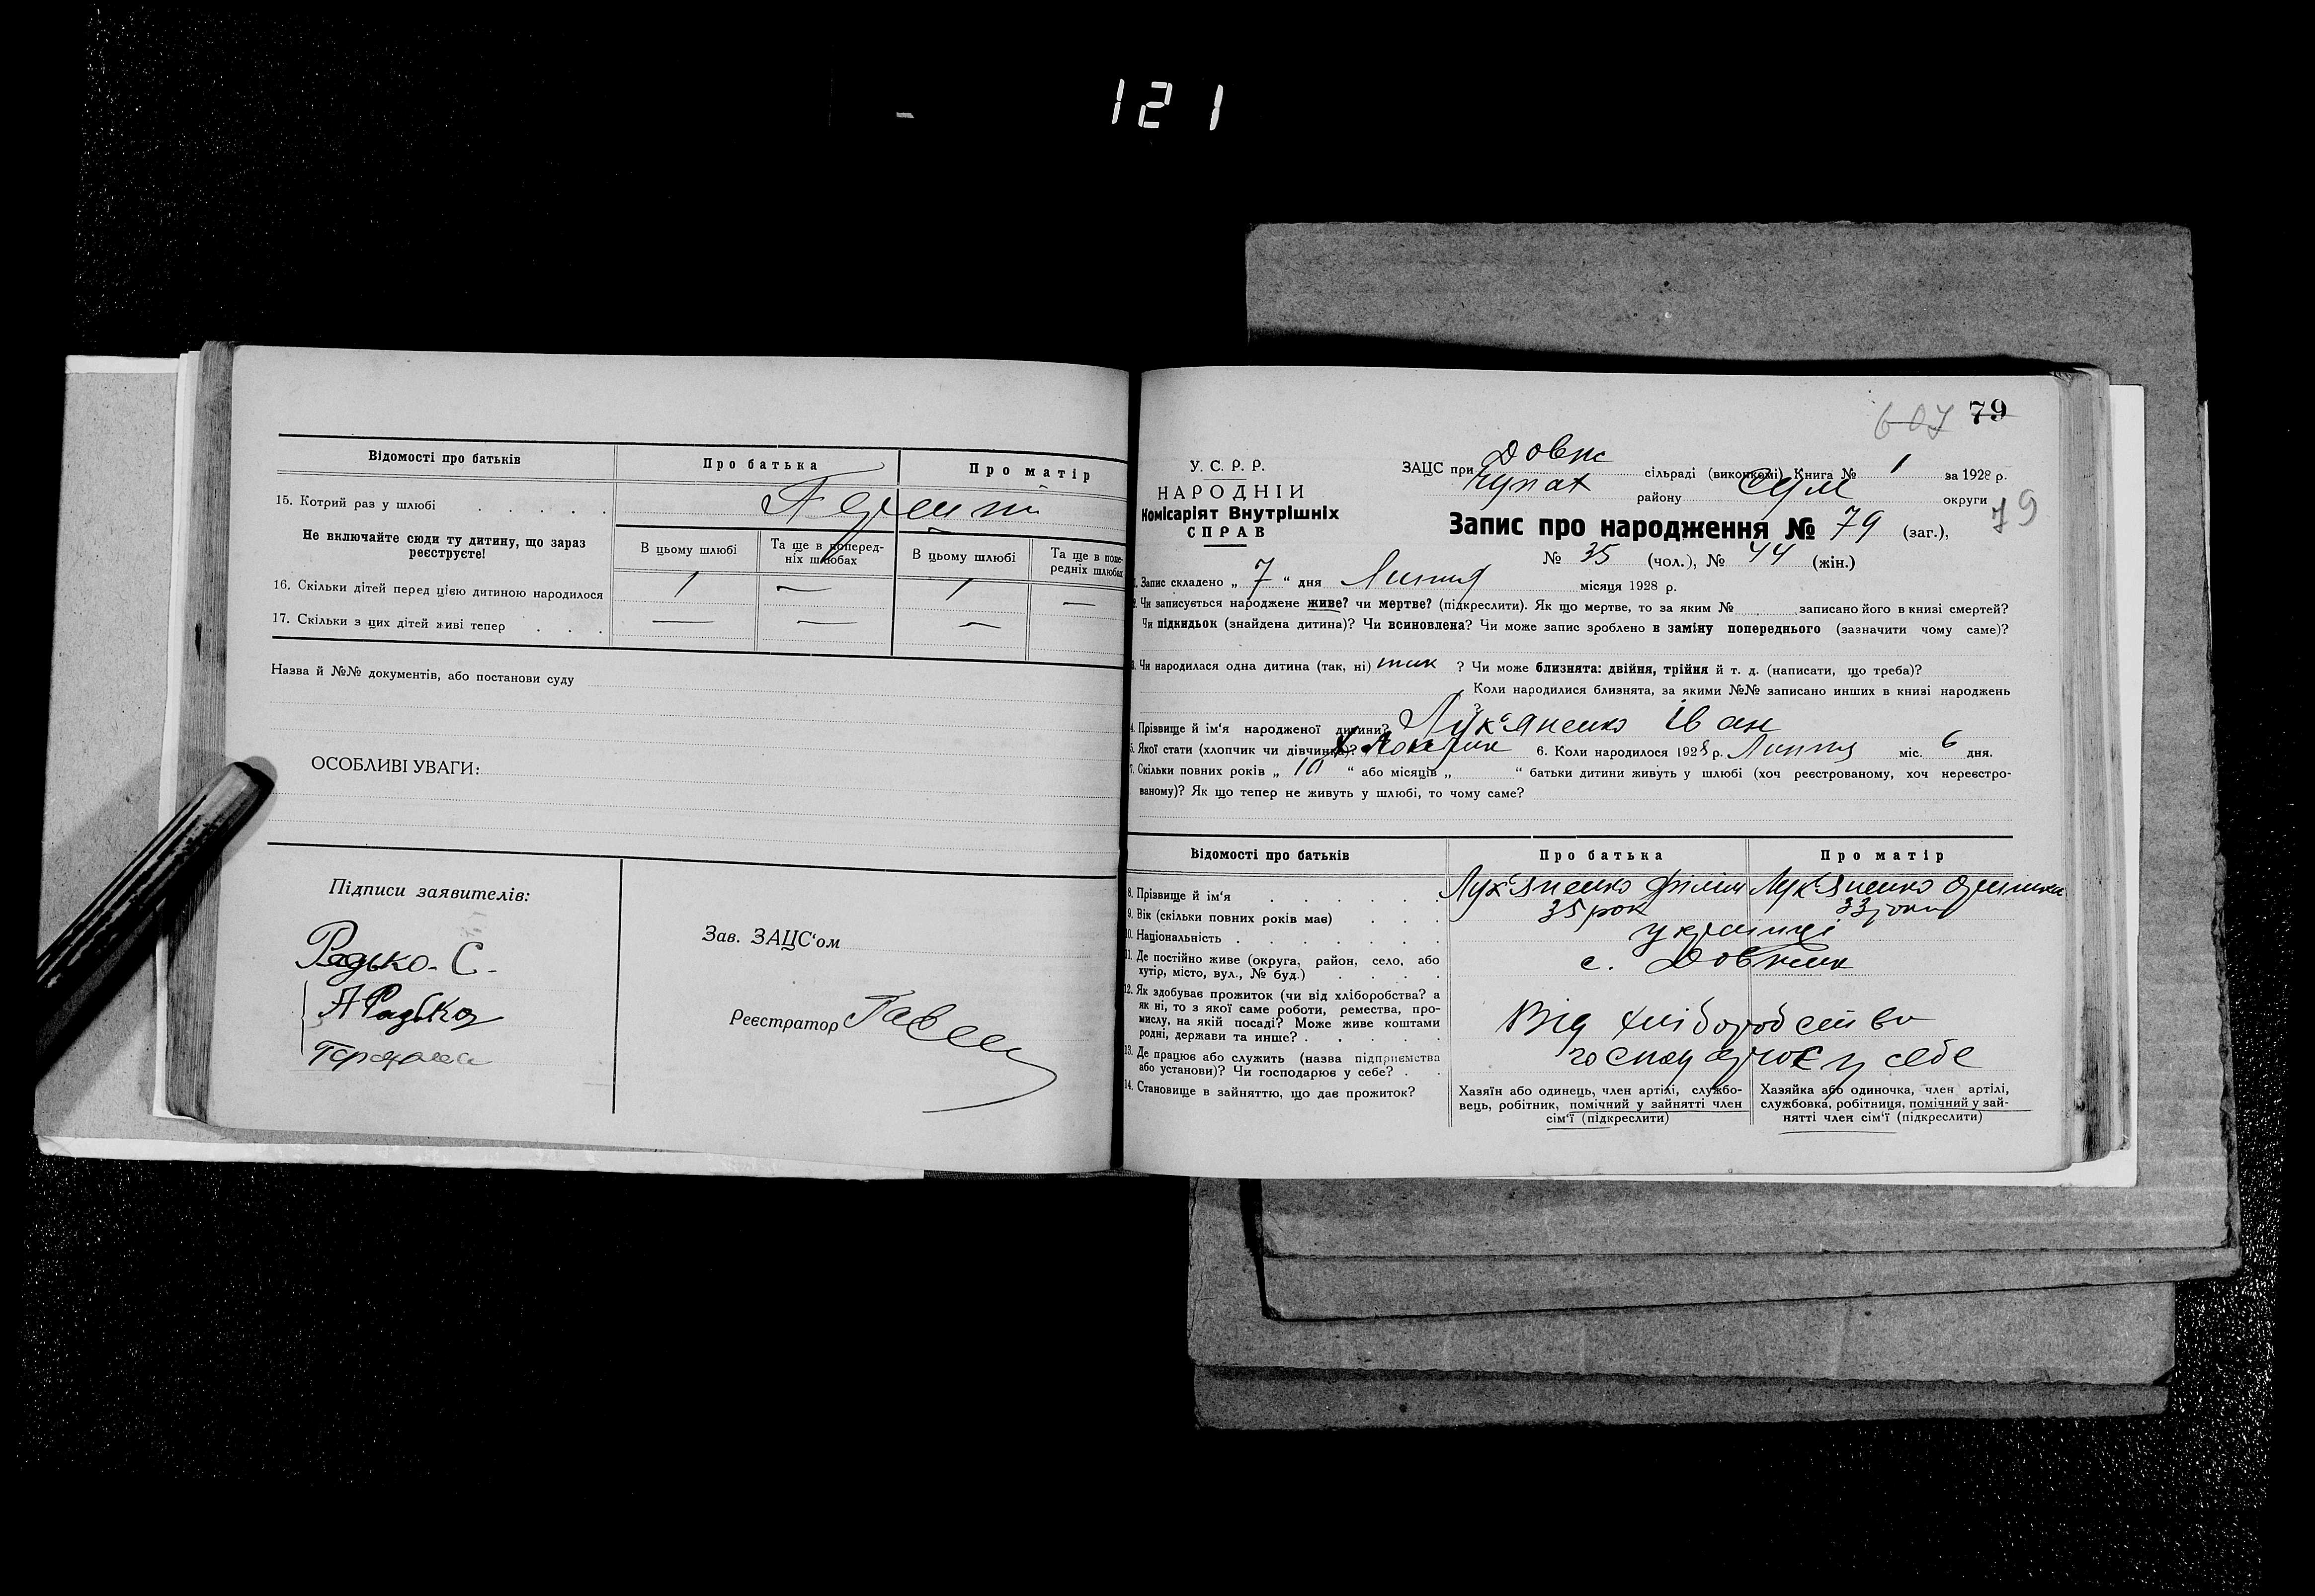 121
Відомості про батьків
Про батька
Про матір
15. Котрий раз у шлюбі
Не включайте сюди ту дитину, що зараз
реєструєте!
В цьому шлюбі
Та ще в поперед-
ніх шлюбах
В цьому шлюбі
Та ще в попе-
редніх шлюбах
16. Скільки дітей перед цією дитиною народилося 1 — 1 —
17. Скільки з цих дітей живі тепер — — —
Назва й №№ документів, або постанови суду
ОСОБЛИВІ УВАГИ:
Підписи заявителів:
Радько. С.
А Радько
Зав. ЗАЦС'ом
Реєстратор
607 79
У. С. Р. Р.
НАРОДНІЙ
Комісаріят Внутрішніх
СПРАВ
ЗАЦС при Довж сільраді (виконкомі) Книга № 1 за 1928 р.
Чупах району Сум округи
79
Запис про народження № 79 (заг.),
№ 35 (чол.), № 44 (жін.)
1. Запис складено „ 7 “ дня Липня місяця 1928 р.
2. Чи записується народжене живе? чи мертве? (підкреслити). Як що мертве, то за яким № записано його в книзі смертей?
Чи підкидьок (знайдена дитина)? Чи всиновлена? Чи може запис зроблено в заміну попереднього (зазначити чому саме)?
3. Чи народилася одна дитина (так, ні) так ? Чи може близнята: двійня, трійня й т. д. (написати, що треба)?
Коли народилися близнята, за якими №№ записано инших в книзі народжень
4. Прізвище й ім'я народженої дитини? Лук'яненко Іван
5. Якої стати (хлопчик чи дівчинка)? Хлопчик 6. Коли народилося 1928 р. Липня міс. 6 дня.
7. Скільки повних років „ 10 “ або місяців „ “ батьки дитини живуть у шлюбі (хоч реєстрованому, хоч нереєстро-
ваному)? Як що тепер не живуть у шлюбі, то чому саме?
Відомості про батьків
Про батька
Про матір
8. Прізвище й ім'я Лук'яненко Філіп Лук'яненко
9. Вік (скільки повних років має) 35 рок 33 роки
10. Національність українці
11. Де постійно живе (округа, район, село, або
хутір, місто, вул., № буд.) с. Довжик
12. Як здобуває прожиток (чи від хліборобства? а
як ні, то з якої саме роботи, ремества, про-
мислу, на якій посаді? Може живе коштами
родні, держави та инше?
Від хліборобства
13. Де працює або служить (назва підприємства
або установи)? Чи господарює у себе?
господарює у себе
14. Становище в зайняттю, що дає прожиток?
Хазяїн або одинець, член артілі, службо-
вець, робітник, помічний у зайнятті член
сім'ї (підкреслити)
Хазяйка або одиночка, член артілі,
службовка, робітниця, помічний у зай-
нятті член сім'ї (підкреслити)